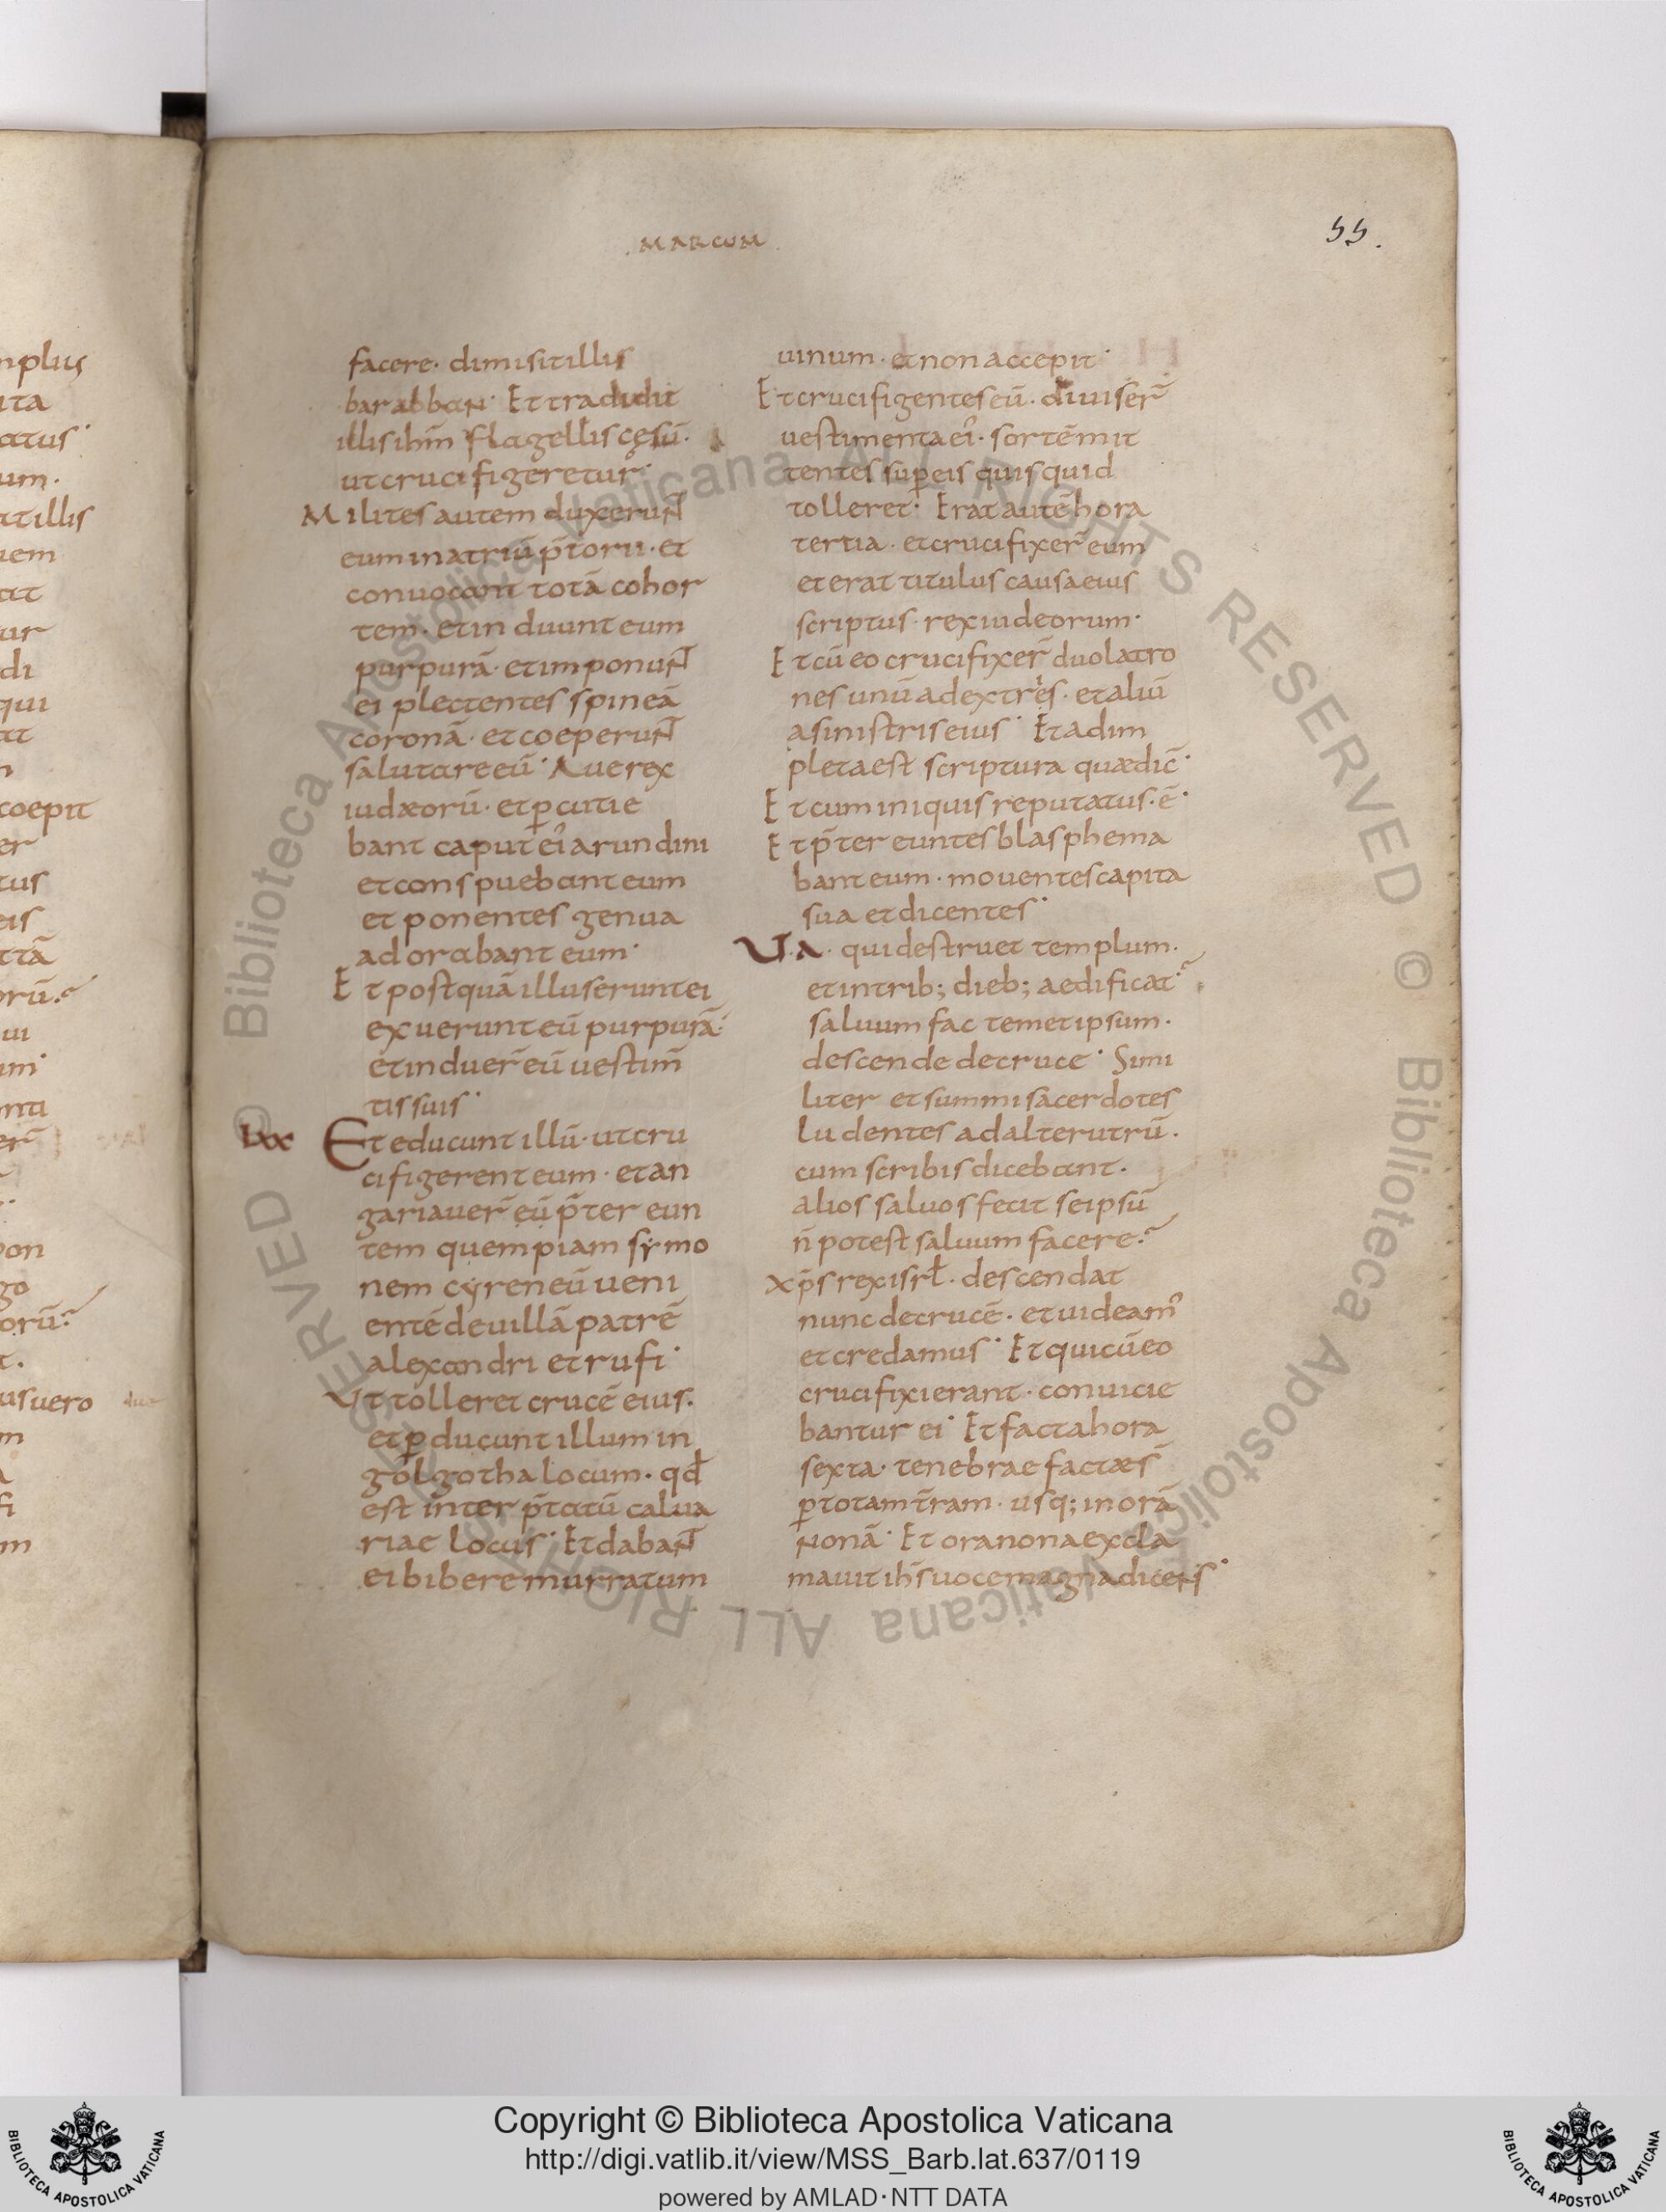 MARCUM
55.
facere· dimisitillis
barabban· Et tradidit
illis ihm̄ flagellis cęsū·
ut crucifigeretur·
Milites autem duxeruNT
eum in atriū p̄torii· et
conuocant totā cohor
tem· et induunt eum
purpurā· et imponuNT
ei plectentes spineā
coronā· et coeperuNT
salutare eū· Aue rex
iudæorū· et ꝑcutie
bant caput ei᾿ arundini
et conspuebant eum
et ponentes genua
adorabant eum·
Et postquā illuserunt ei
exuerunt eū purpurā·
et induer̄ eū uestim̄
tis suis·
lxx Et educunt illū· ut cru
cifigerent eum· et an
gariauer̄ eū p̄ter eun
tem quempiam symo
nem cyreneū ueni
entē de uillā patrē
alexandri et rufi·
Ut tolleret crucē eius·
et ꝑducunt illum in
golgotha locum· qđ
est inter p̄tatū calua
riae locus· Et dabaNT
ei bibere murratum
uinum· et non accepit·
Et crucifigentes eū· diuiser̄
uestimenta ei᾿· sortē mit
tentes suꝑ eis quis quid
tolleret· Erat autē hora
tertia· et crucifixer̄ eum
et erat titulus causa eius
scriptus· rex iudeorum·
Et cū eo crucifixer̄ duo latro
nes unū a dextres· et aliū
a sinistris eius· Et adim
pleta est scriptura quæ dic̄·
Et cum iniquis reputatus· ē·
Et p̄ter euntes blasphema
bant eum· mouentes capita
sua et dicentes·
Ua· qui destruet templum·
et in trib; dieb; aedificat·
saluum fac temetipsum·
descende de cruce· Simi
liter et summi sacerdotes
ludentes ad alterutrū·
cum scribis dicebant·
alios saluos fecit seipsū
n̄ potest saluum facere·
xp̄s rex isrł· descendat
nunc de crucē· et uideam᾿
et credamus· Et qui cū eo
crucifixi erant· conuicie
bantur ei· Et facta hora
sexta· tenebrae factæ s̄
ꝑ totam t̄ram· usq; in orā
Nonā· Et ora nona excla
mauit ihs̄ uoce magna dicens·
© Biblioteca Apostolica Vaticana ALL RIGHTS RESERVED © Biblioteca Apostolica Vaticana ALL RIGHTS RESERVED
Copyright © Biblioteca Apostolica Vaticana
http://digi.vatlib.it/view/MSS_Barb.lat.637/0119
powered by AMLAD·NTT DATA
BIBLIOTECA APOSTOLICA VATICANA
BIBLIOTECA APOSTOLICA VATICANA